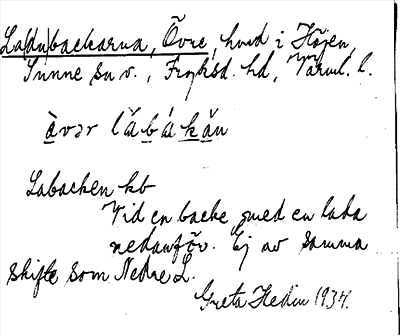 La(du)backarna, Övre, hmd i Höjen,
Sunne sn v., Fryksd. hd, Värml. l.
àvər lăbákăn
Labacken kb
Vid en backe med en lada
nedanför. Ej av samma
skifte som Nedre L.
Greta Hedin 1934.